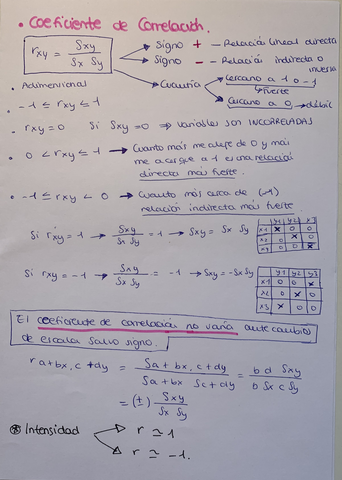 • Coeficiente de Correlación.
rxy = Sxy / Sx Sy
Signo + — Relación lineal directa
Signo - — Relación indirecta o inversa
Cuantía
cercano a 1 o -1
↳ fuerte
Cercano a 0 → débil
• Adimensional
• -1 ≤ rxy ≤ 1
• rxy = 0 Si Sxy = 0 ⇒ variables SON INCORRELADAS
• 0 < rxy ≤ 1 → Cuanto más me aleje de 0 y más
me acerque a 1 es una relación
directa más fuerte.
• -1 ≤ rxy < 0 → Cuanto más cerca de (-1)
relación indirecta más fuerte.
Si rxy = 1 → Sxy / Sx Sy = 1 → Sxy = Sx Sy
y1 y2 y3
x1 x 0 0
x2 0 x 0
x3 0 0 x
Si rxy = -1 → Sxy / Sx Sy = -1 → Sxy = -Sx Sy
y1 y2 y3
x1 0 0 x
x2 0 x 0
x3 x 0 0
El coeficiente de correlación no varía ante cambio
de escala salvo signo.
r a+bx, c+dy = Sa+bx, c+dy / Sa+bx Sc+dy = b d Sxy / b Sx d Sy
= (±) Sxy / Sx Sy
⊛ Intensidad
r ≃ 1
r ≃ -1.